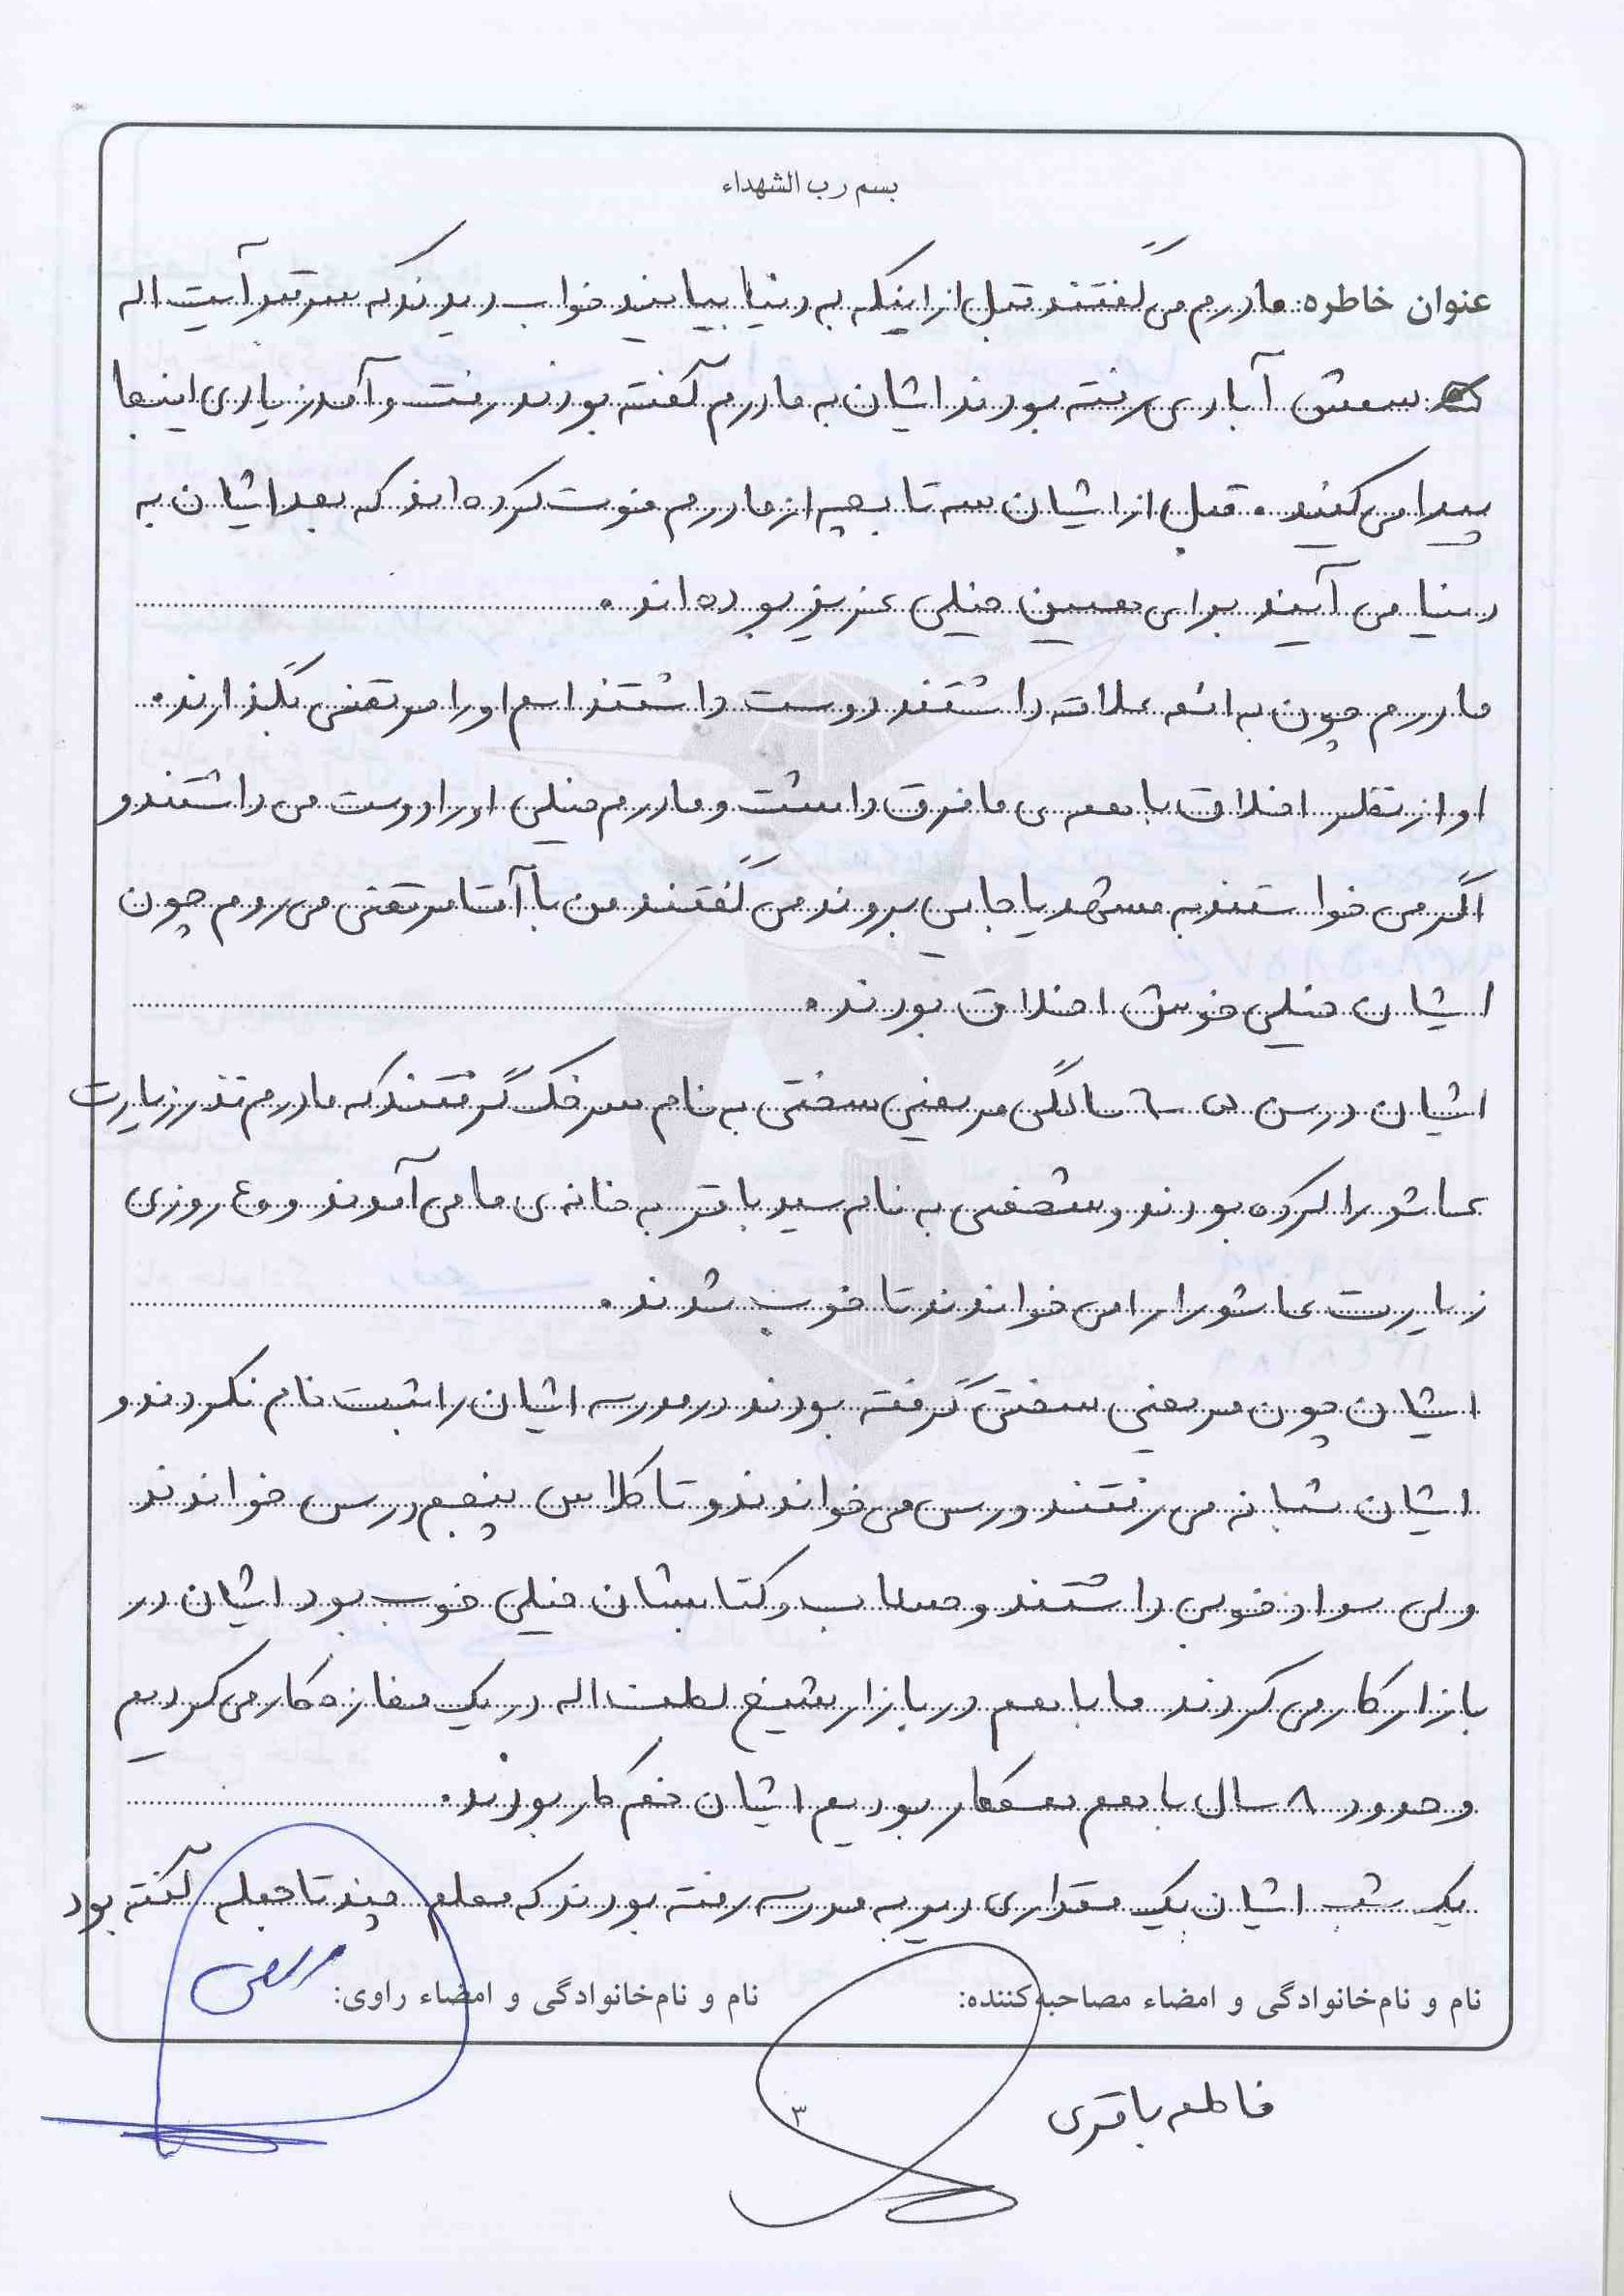 بسم رب الشهداء
عنوان خاطره: مادرم می گفتند قبل از اینکه به دنیا بیایند خواب دیدند که سر قبر آیت اله
شمس آبادی رفته بودند ایشان به مادرم گفته بودند رفت و آمد زیادی اینها
پیدا می کنید. قبل از ایشان سه تا بچه از مادرم فوت کرده اند که بعد ایشان به
دنیا می آیند برای همین خیلی عزیز بوده اند.
مادرم چون به ائمه علاقه داشتند دوست داشتند اسم او را مرتضی بگذارند.
او از نظر اخلاق با همه ی ما فرق داشت و مادرم خیلی او را دوست می داشتند و
اگر می خواستند به مشهد یا جایی بروند می گفتند من با آقا مرتضی می روم چون
ایشان خیلی خوش اخلاق بودند.
ایشان در سن ۵ ـ ۶ سالگی مریضی سختی به نام سرخک گرفتند که مادرم نذر زیارت
عاشورا کرده بودند و شخصی به نام سید باقر به خانه ی ما می آمدند و ۴۰ روزی
زیارت عاشورا را می خواندند تا خوب شدند.
ایشان چون مریضی سختی گرفته بودند در مدرسه ایشان را ثبت نام نکردند و
ایشان شبانه می رفتند درس می خواندند و تا کلاس پنجم درس خواندند
ولی سواد خوبی داشتند و حساب و کتابشان خیلی خوب بود ایشان در
بازار کار می کردند ما با هم در بازار شیخ لطف اله در یک مغازه کار می کردیم
و حدود ۸ سال با هم همکار بودیم ایشان خم کار بودند.
یک شب ایشان یک مقداری دیر به مدرسه رفته بودند که معلم چند تا جمله گفته بود
نام و نام‌خانوادگی و امضاء مصاحبه‌کننده: نام و نام‌خانوادگی و امضاء راوی:
فاطمه باقری
۳